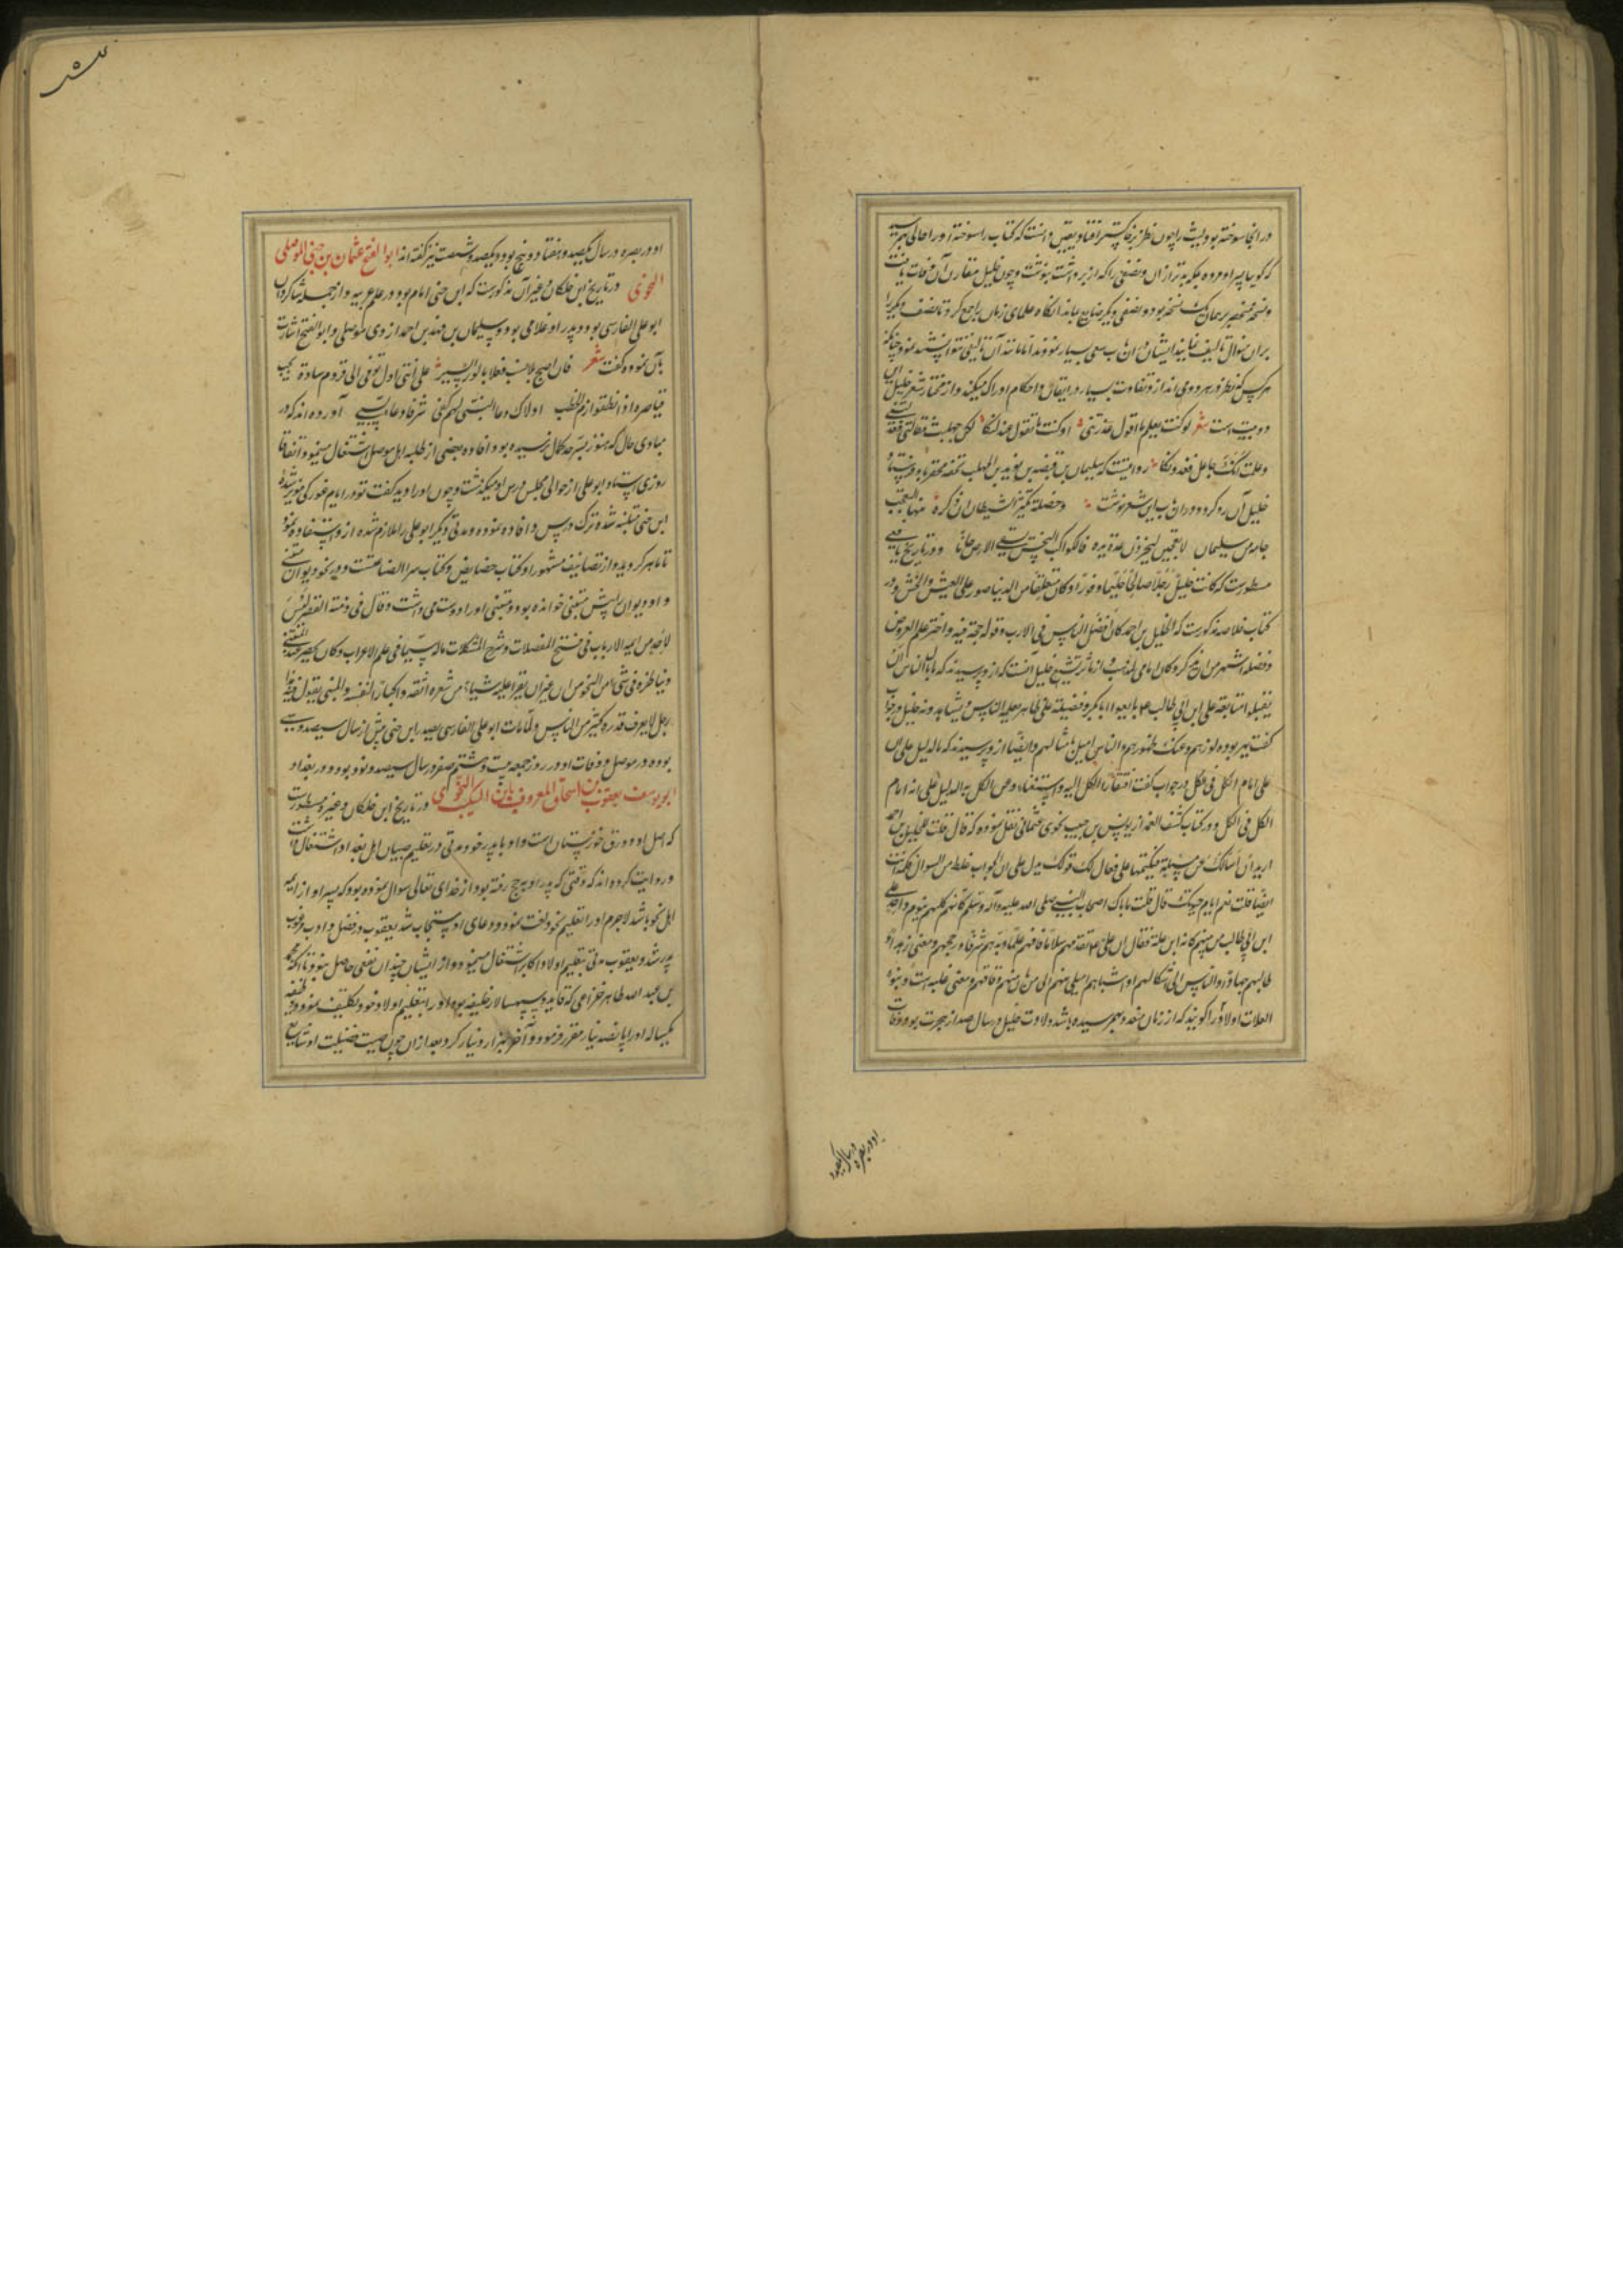 در انجا سوخته بود لیث را چون نظر بر خاکستر افتاد و یقین دانست که کتاب را سوخته اورا حالی بهم رسید
که گویا پسر او مرده بلکه بدتر از ان و نصفی را که از بر داشت بنوشت و چون خلیل مقارن آن وفات یافت
و نسخه منحصر بر همان یک نسخه بود و نصفی دیگر ضایع بماند انگاه علمای زمان را جمع کرد تا نصف دیگر را
بران منوال تالیف نمایند ایشان در ان باب سعی بسیار نمودند اما مانند آن تالیفی نتوانستند نمود چنانکه
هر کس که نظر در هر دو می اندازد تفاوت بسیار در اتقان و احکام ادراک میکند و از مختار شعر خلیل این
دو بیت است شعر لو کنت تعلم ما اقول عذرتنی او کنت ما تقول عذلتکا لکن جهلت مقالتی فعذلتنی
و علمت انک جاهل فعذرتکا روایتست که سلیمان بن قبیصه بن یزید بن المهلب تحفه محقر باو فرستاد
خلیل آن رد کرد و در ان باب این شعر نوشت و خصلة یکثر الشیطان ان ذکرت منها العجب
جاءت من سلیمان لا تعجبن لخیر زل عن یده فالکوکب النحس یسقی الارض احیانا و در تاریخ یافعی
مسطورست که کانت خلیل رجلا صالحا حلیما وقورا و کان متعلقا من الدنیا صبور علی العیش و الخشن و در
کتاب خلاصه مذکورست که الخلیل بن احمد کان افضل الناس فی الادب و قوله حجة فیه و اخترع علم العروض
و فضله اشهر من ان یذکر و کان امامی المذهب و از مآثر تشیع خلیل آنست که ازو پرسیدند که ما بال الناس ان
علی امام الکل فی الکل در جواب گفت افتقار الکل الیه و استغناؤه عن الکل هو الدلیل علی انه امام
الکل فی الکل و در کتاب کشف الغمه از یونس بن حبیب نحوی عثمانی نقل نموده که قال قلت للخلیل بن احمد
ارید ان اسالک عن مسئلة فتکتمها علی فقال لک قولک یدل علی ان الجواب اغلظ من السوال فتکتمه انت
ایضا قلت نعم ایام حیوتک قال قلت ما بال اصحاب النبی صلی الله علیه و آله و سلم کانهم کلهم بنو ام واحدة و علی
ابن ابی طالب من بینهم کانه ابن علة فقال ان علیا تقدمهم سلاما و فاقهم علما و بذهم شرفا و رجحهم زهدا و
طالهم جهادا و الناس الی اشکالهم و اشباههم امیل منهم الی من بان منهم و فاقهم و معنی علة است و بنو
العلات اولادی را گویند که از زنان متعدد بهم رسیده باشد ولادت خلیل در سال صد از هجرت بود و وفات
او در بصره در سال یکصد
او در بصره در سال یکصد و هفتاد و پنج بود و یکصد و شصت نیز گفته اند ابو الفتح عثمان بن جنی الموصلی
النحوی در تاریخ ابن خلکان و غیر آن مذکورست که ابن جنی امام بود در علم عربیه و از جمله شاگردان
ابو علی الفارسی بود و پدر او غلامی بود و سلیمان بن فهد بن احمد ازدی موصلی و ابو الفتح اشارت
بآن نموده گفت شعر فان اصبح بلا نسب فعلمی فی الوری نسبی علی انی اول توفی الی قروم سادة نجب
قیاصرة اذا نطقوا ارم الخطب اولاک دعا النبی لهم کفی شرفا دعاء نبی آورده اند که در
مبادی حال که هنوز بسرحد کمال نرسیده بود افاده بعضی از طلبه اهل موصل اشتغال مینمود اتفاقا
روزی استاد ابو علی از حوالی مجلس درس او میگذشت و چون اورا دید گفت تو در ایام غورگی مویز شده
ابن جنی متنبه شده ترک درس و افاده نموده و مدتی دیگر ابو علی را ملازم شده ازو استفاده نمود
تا ماهر گردید و از تصانیف مشهور او کتاب خصایص و کتاب سر الصناعتست و در نحو دیوان متنبی
و او دیوان را پیش متنبی خوانده بود و متنبی اورا دوست می داشت و قال فی دمیة القصر لیس
لاحد من ایمة الادب فی فتح المقفلات و شرح المشکلات ماله سیما فی علم الاعراب و کان یحضر عند المتنبی
و یناظره فی شیء من النحو من غیر ان یقرأ علیه شیئا من شعره انفة و اکبارا لنفسه و المتنبی یقول فیه هذا
رجل لا یعرف قدره کثیر من الناس و لما مات ابو علی الفارسی تصدر ابن جنی پیش از سال سیصد و سی
بوده در موصل و وفات او در روز جمعه بیست و هشتم صفر در سال سیصد و نود بود و در بغداد
ابو یوسف یعقوب بن اسحاق المعروف بابن السکیت النحوی در تاریخ ابن خلکان و غیره مسطورست
که اصل او دورق خوزستان است و او با پدر خود مدتی در تعلیم صبیان اهل بغداد اشتغال داشت
و روایت کرده اند که وقتی که پدر او بحج رفته بود از خدای تعالی سوال نموده بود که پسر او از ایمه
اهل نحو باشد لاجرم اورا تعلیم نحو و لغت نمود و دعای او مستجاب شد یعقوب در فضل و ادب مرغوب
پدر شد و یعقوب مدتی بتعلیم اولاد اکابر اشتغال مینمود و از ایشان چندان نفعی حاصل ننمود تا آنکه محمد
بن عبد الله طاهر خزاعی که قاید و سپهسالار خلیفه بود اورا بتعلیم اولاد خود تکلیف نمود و وظیفه
یکساله اورا پانصد دینار مقرر فرمود و آخر هزار دینار کرد بعد از ان چون صیت فضیلت او شایع